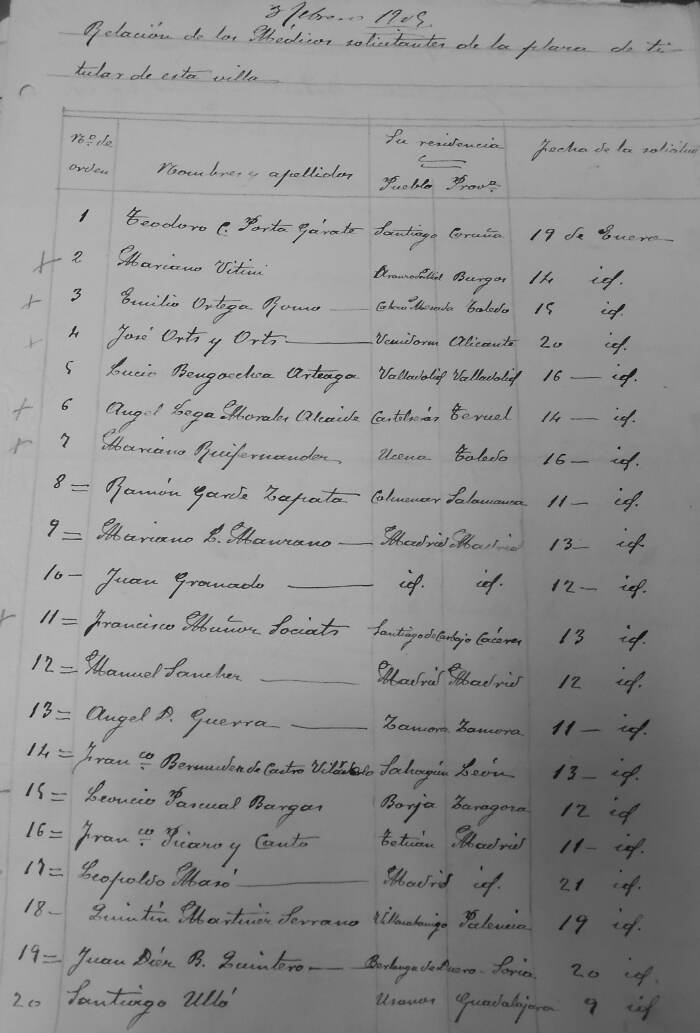 3 febrero 1905.
Relación de los Médicos solicitantes de la plaza de ti
tular de esta villa
Nº de orden Nombres y apellidos Su residencia Pueblo Provª Fecha de la solicitud
1 Teodoro C. Porta Gárate Santiago Coruña 19 de Enero
+ 2 Mariano Vitini Burgos 14 id.
+ 3 Emilio Ortega Romo — Toledo 15 id.
+ 4 José Orts y Orts — Venidorm Alicante 20 id.
5 Lucio Bengoechea Arteaga Valladolid Valladolid 16 — id.
+ 6 Angel Lega Morales Alcaide Castelserás Teruel 14 — id.
+ 7 Mariano Ruifernandez Ucena Toledo 16 — id.
8 = Ramón Garde Zapata Colmenar Salamanca 11 — id.
9 = Mariano L. Manzano — Madrid Madrid 13 — id.
10 — Juan Granado — id. id. 12 — id.
+ 11 = Francisco Muñoz Sociats Santiago de Carbajo Cáceres 13 id.
12 = Manuel Sanchez — Madrid Madrid 12 id.
13 = Angel D. Guerra — Zamora Zamora 11 — id.
14 = Franco. Bermudez de Castro Sahagún León 13 — id.
15 = Leoncio Pascual Bargas Borja Zaragoza 12 id
16 = Franco. Pícaro y Canto Tetuán Madrid 11 — id.
17 = Leopoldo Masó — Madrid id. 21 id.
18 — Quintín Martinez Serrano Palencia 19 id.
19 = Juan Diéz B. Quintero — Berlanga de Duero - Soria 20 id.
20 Santiago Ulló Usanos Guadalajara 9 id